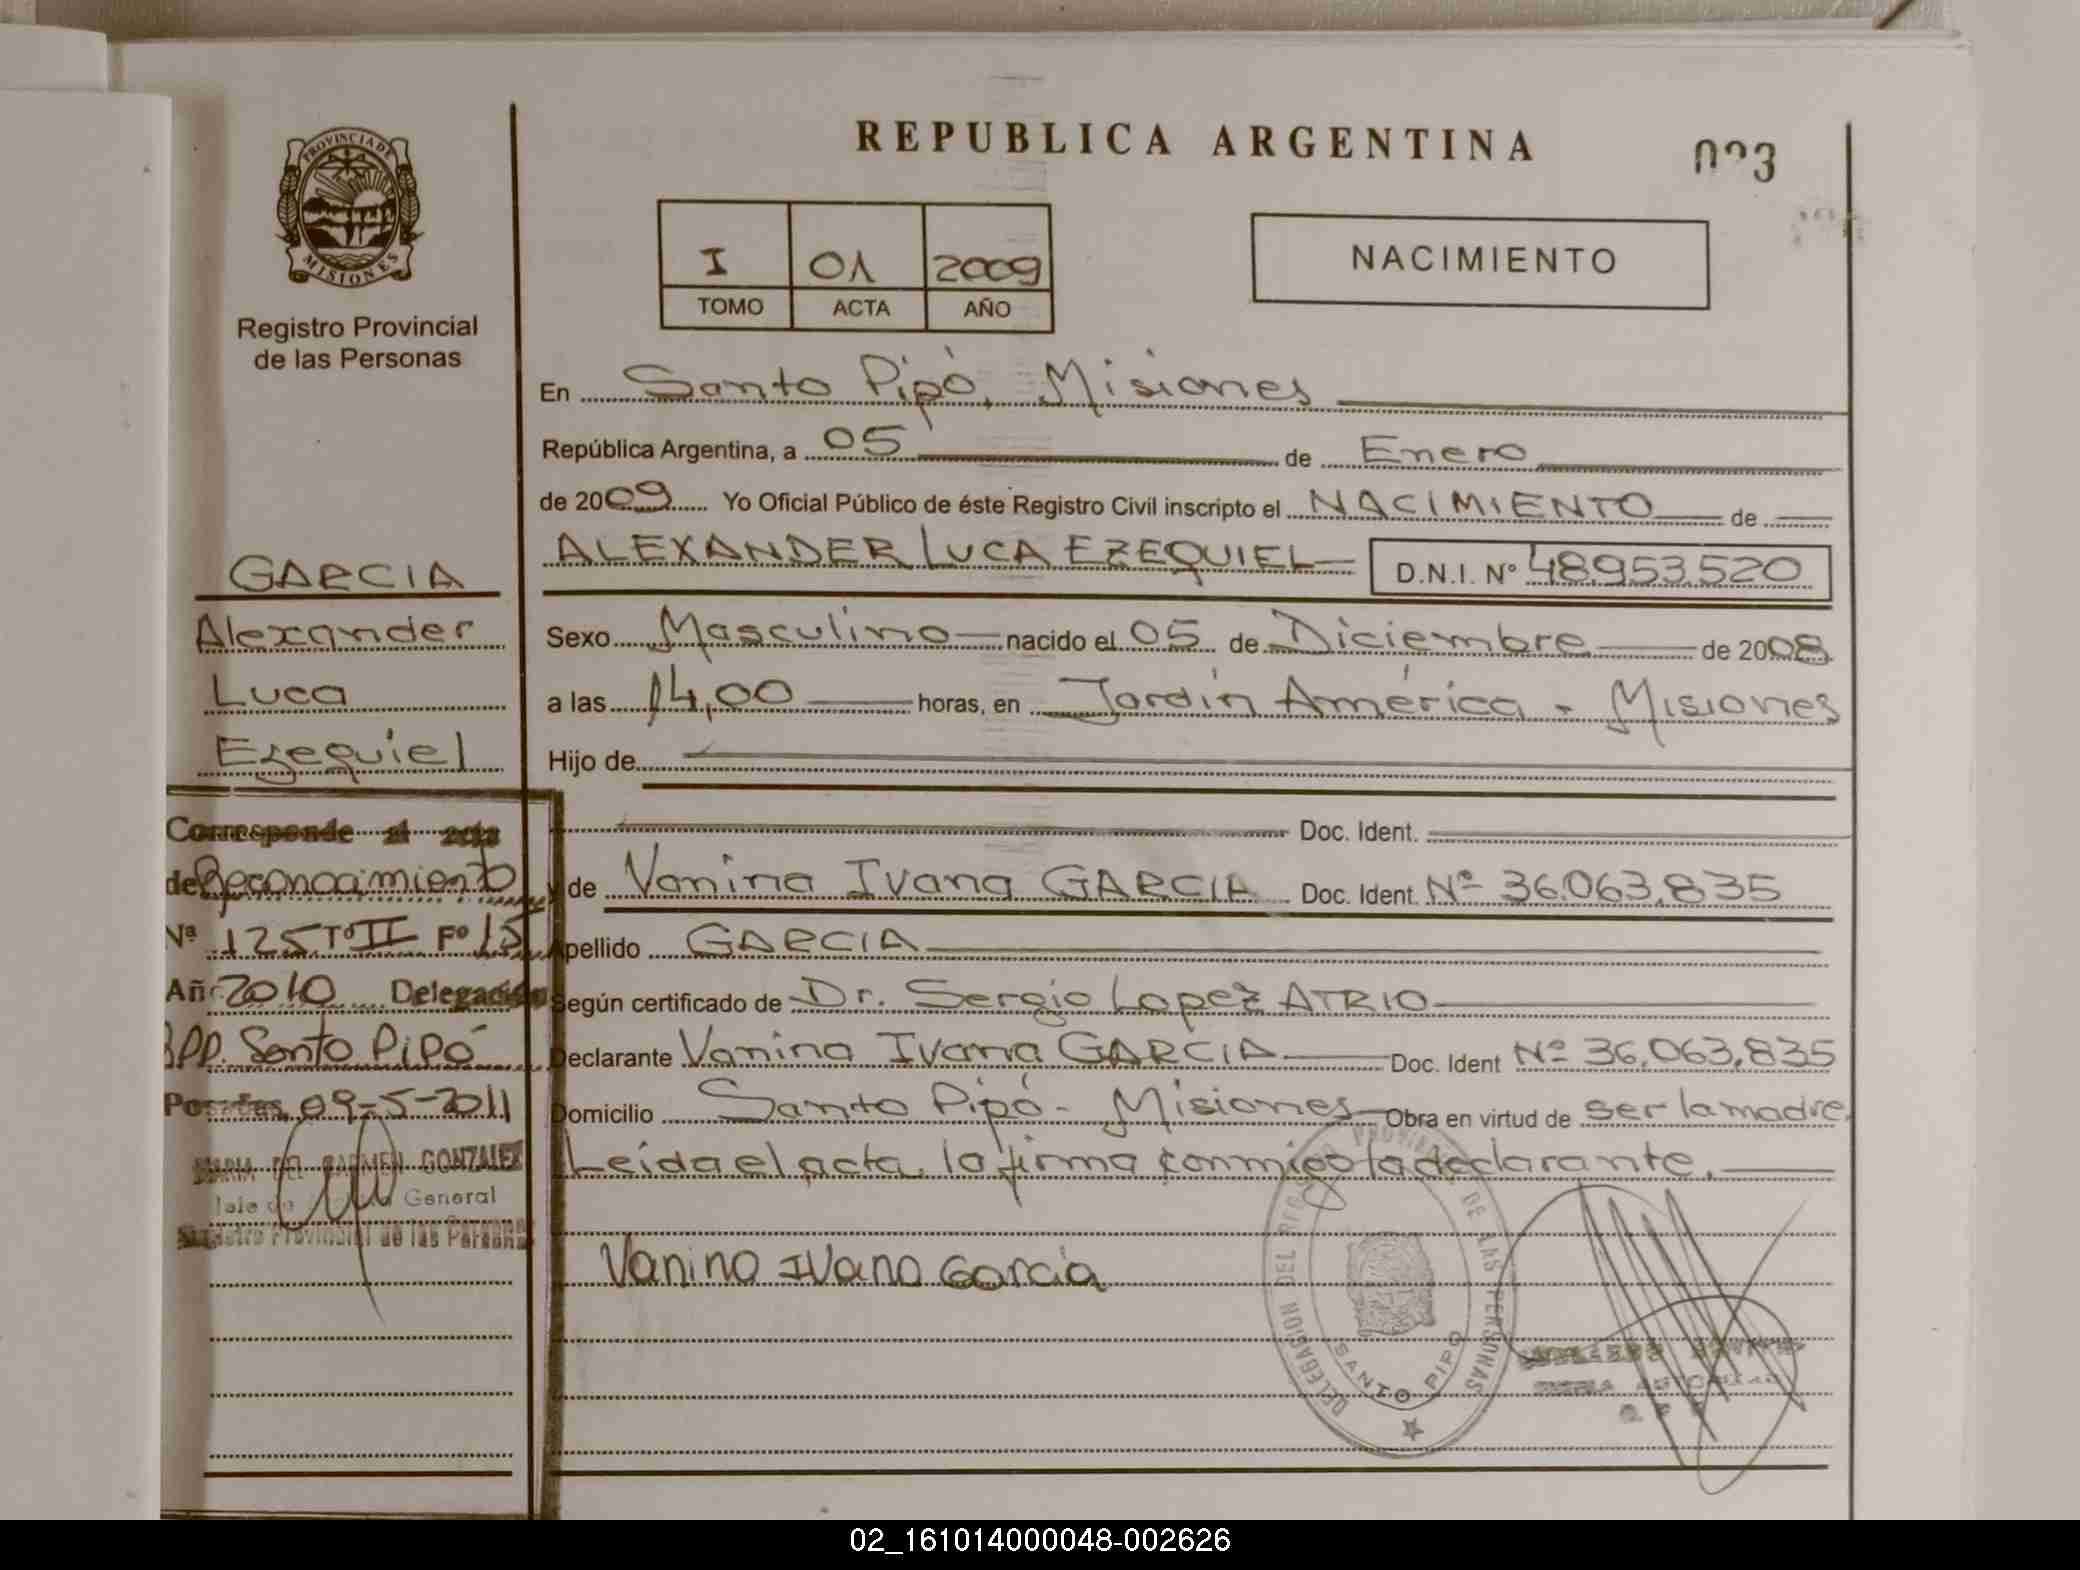 REPUBLICA ARGENTINA
PROVINCIA DE
MISIONES
Registro Provincial
de las Personas
I 01 2009
TOMO ACTA AÑO
NACIMIENTO
En Santo Pipó, Misiones
República Argentina, a 05 de Enero
de 2009 Yo Oficial Público de éste Registro Civil inscripto el NACIMIENTO de
ALEXANDER LUCA EZEQUIEL D.N.I. N° 48.953.520
Sexo Masculino nacido el 05 de Diciembre de 2008
a las 14,00 horas, en Jardín América - Misiones
Hijo de
Doc. Ident.
y de Vanina Ivana GARCIA Doc. Ident. Nº 36.063.835
Apellido GARCIA
Según certificado de Dr. Sergio Lopez ATRIO
Declarante Vanina Ivana GARCIA Doc. Ident Nº 36.063.835
Domicilio Santo Pipó - Misiones Obra en virtud de ser la madre.
Leída el acta, la firma conmigo la declarante.
Vanina Ivana Garcia
DELEGACION DEL REGISTRO PROVINCIAL DE LAS PERSONAS
SANTO PIPO
GARCIA
Alexander
Luca
Ezequiel
Corresponde al acta
de Reconocimiento
Nª 125 Tº II Fº 15
Año 2010 Delegación
RPP. Santo Pipó
Posadas, 09-5-2011
MARIA DEL CARMEN GONZALEZ
General
Registro Provincial de las Personas
02_161014000048-002626